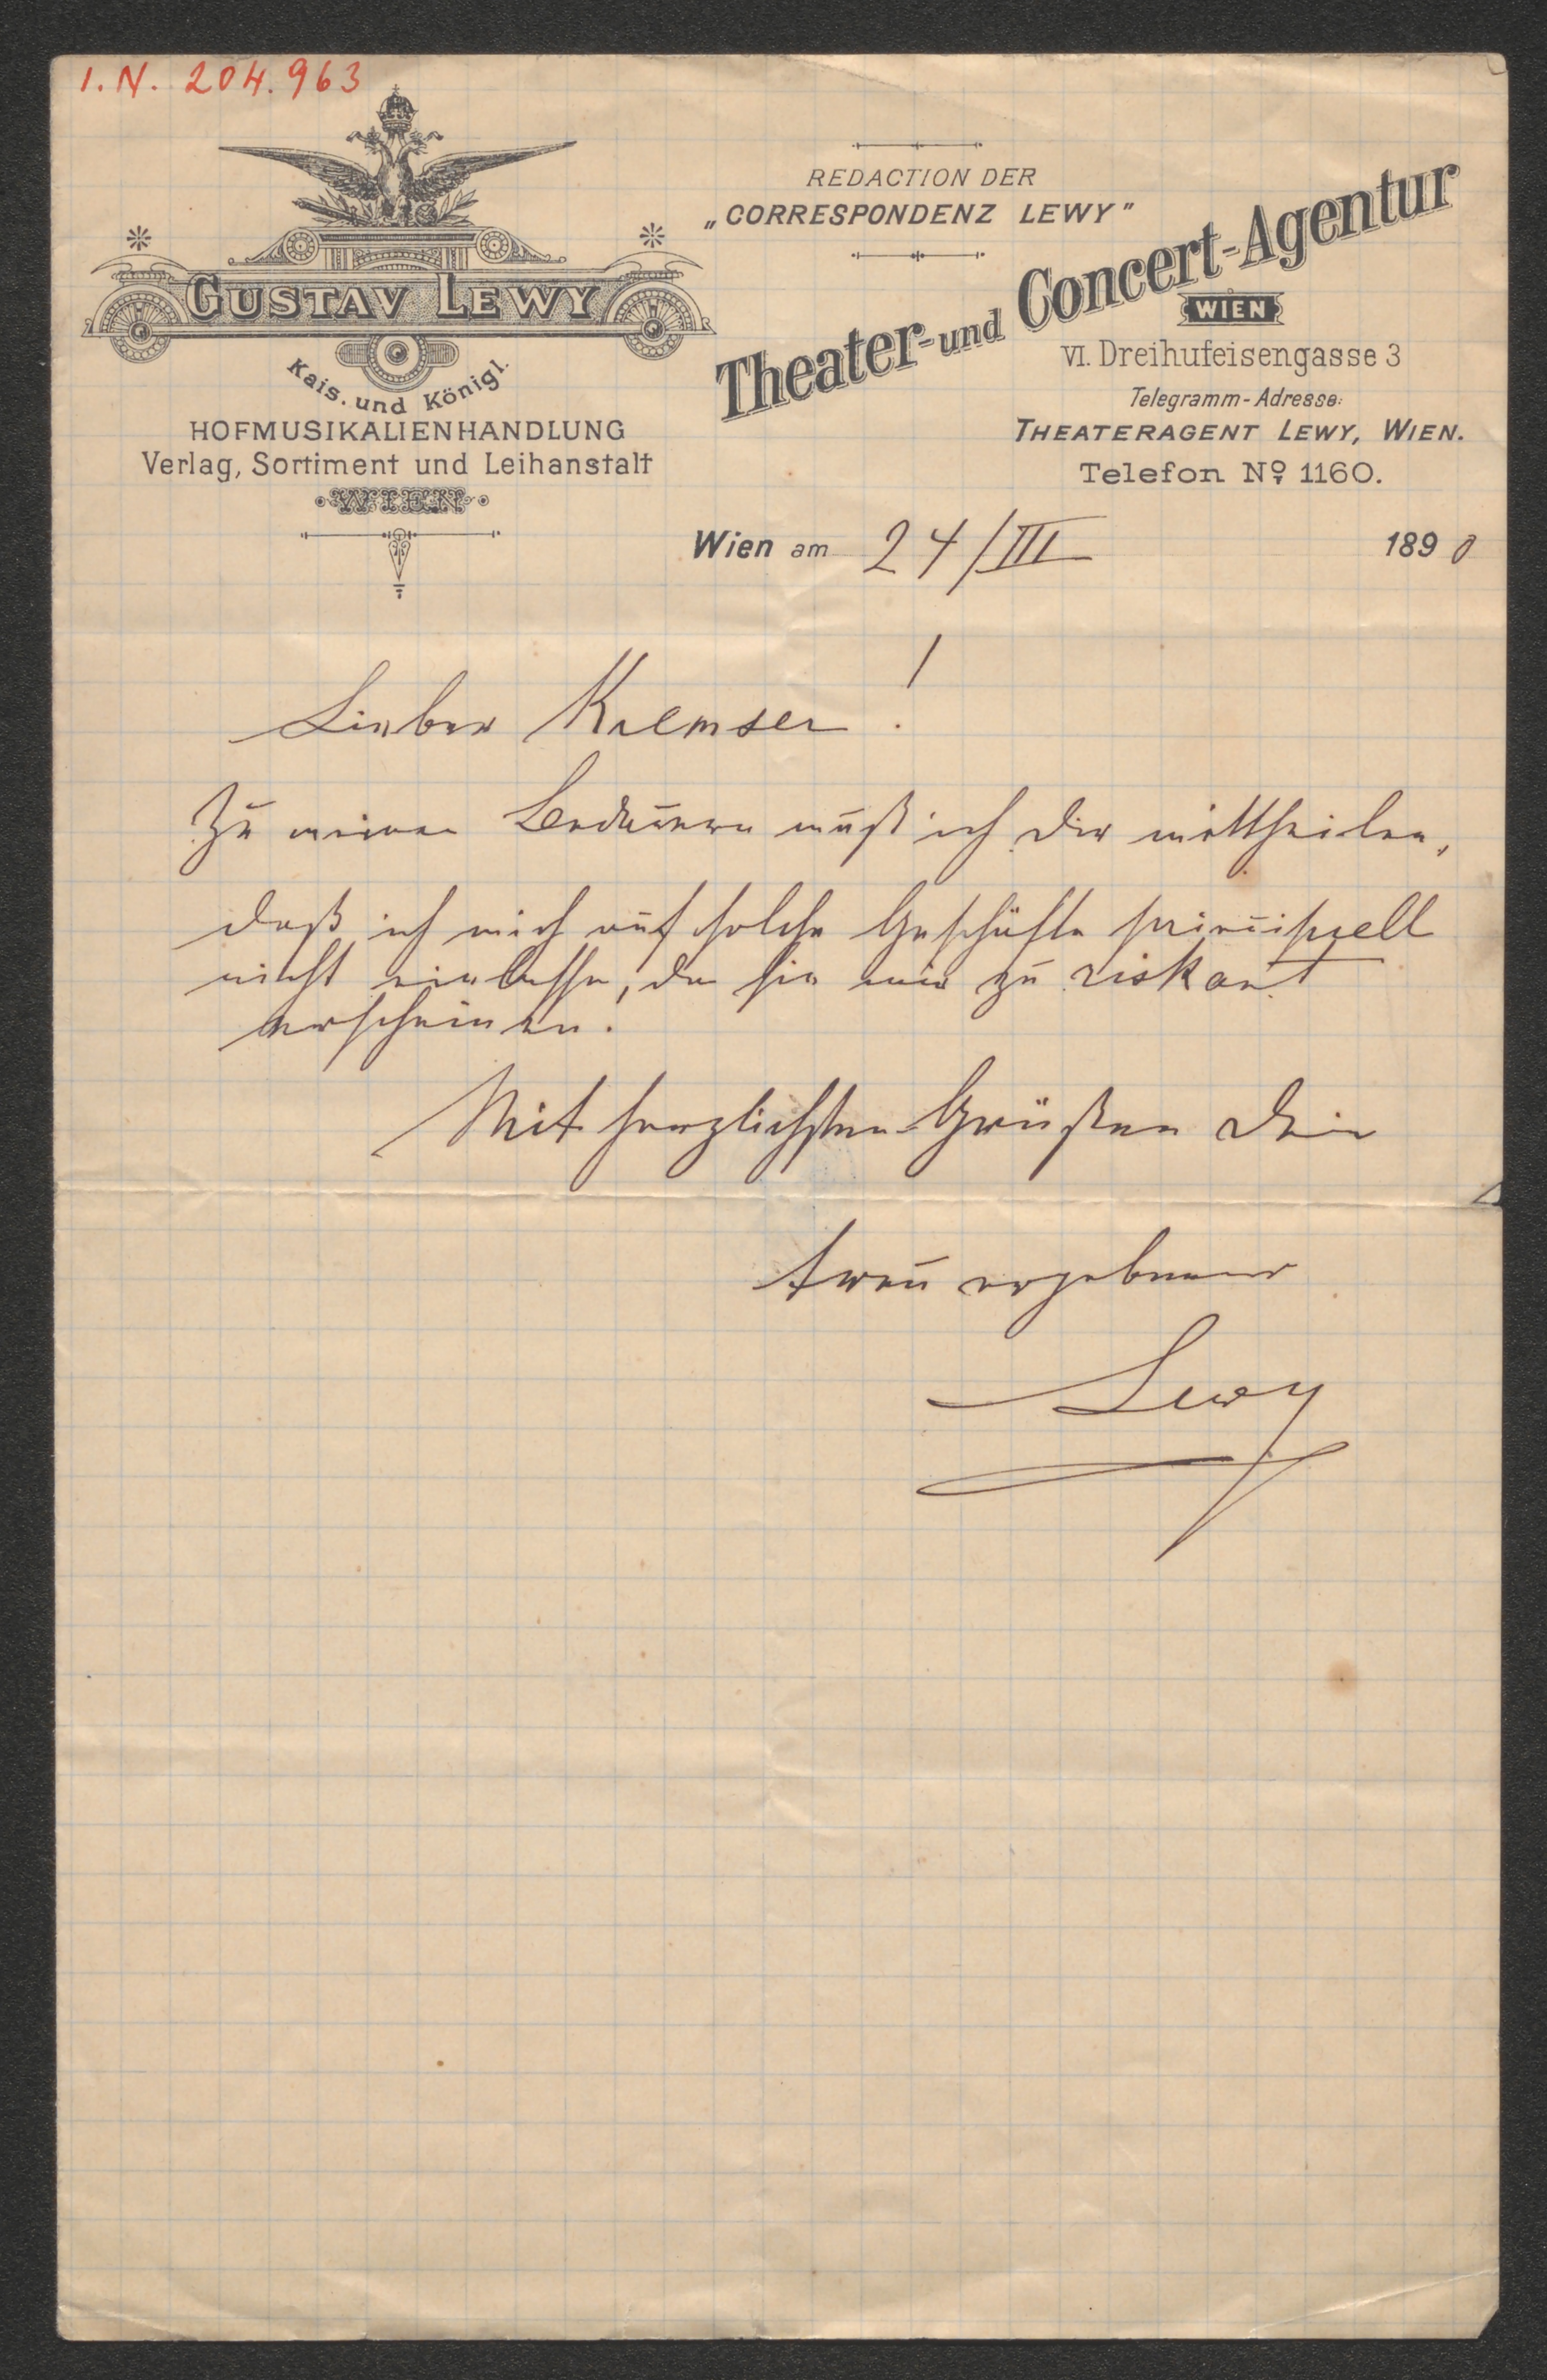 I. N. 204.963
GUSTAV LEWY
Kais. und Königl.
HOFMUSIKALIENHANDLUNG
Verlag, Sortiment und Leihanstalt
WIEN
REDACTION DER
„CORRESPONDENZ LEWY"
Theater- und Concert-Agentur
WIEN
VI. Dreihufeisengasse 3
Telegramm-Adresse:
THEATERAGENT LEWY, WIEN.
Telefon No 1160.
Wien am 24/III 1890
Lieber Kremser!
Zu meinen Bedauern muß ich dir mittheilen,
daß ich mich auf solche Geschäfte principiell
nicht einlasse, da sie mir zu riskant
erscheinen.
Mit herzlichsten Grüßen dein
treu ergebener
Lewy